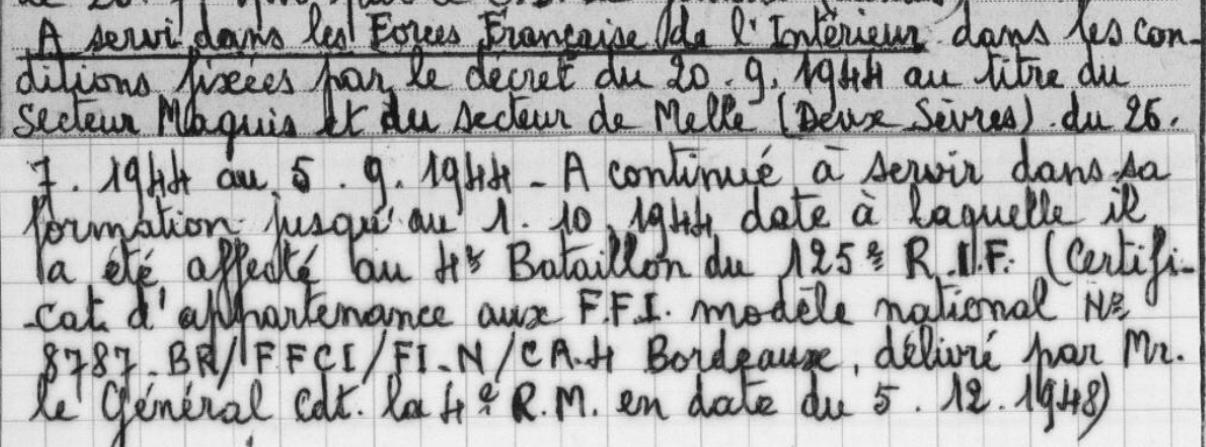 A servi dans les Forces Française de l'Intérieur dans les con-
ditions fixées par le décret du 20.9.1944 au titre du
Secteur Maquis et du secteur de Melle (Deux Sèvres). du 26.
7. 1944 au 5. 9. 1944 - A continué à servir dans sa
formation jusqu'au 1. 10. 1944, date à laquelle il
a été affecté au 4e Bataillon du 125e R.I.F. (Certifi-
-cat d'appartenance aux F.F.I. modèle national No
8787-BR/FFCI/FI-N/CA.4 Bordeaux, délivré par Mr.
le Général Cdt. la 4e R.M. en date du 5. 12. 1948)